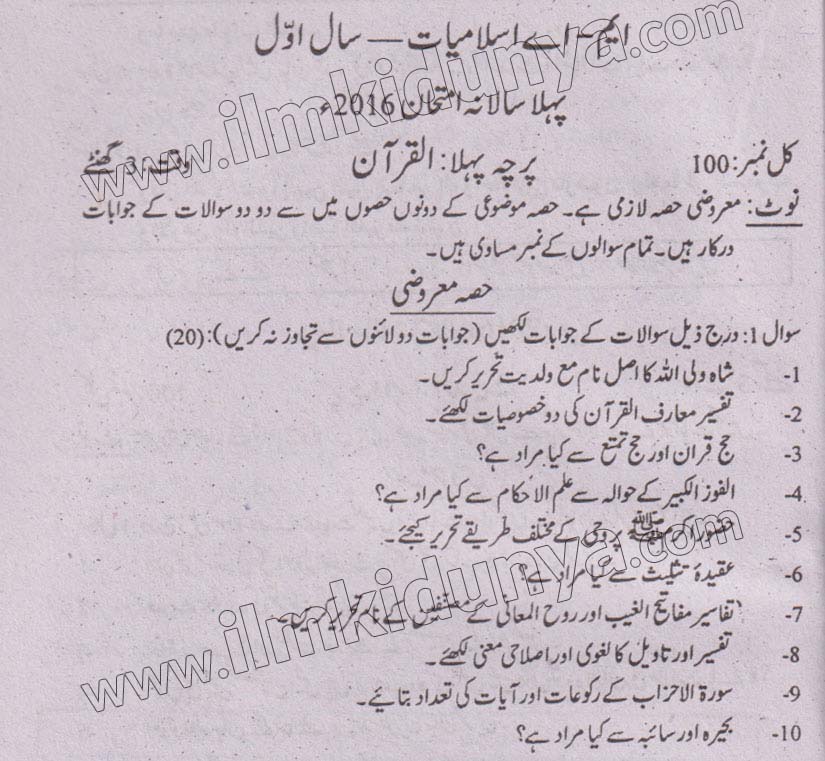 ایم-اے اسلامیات — سال اوّل
پہلا سالانہ امتحان 2016ء
کل نمبر: 100 پرچہ پہلا: القرآن وقت: 3 گھنٹے
نوٹ: معروضی حصہ لازمی ہے۔ حصہ موضوعی کے دونوں حصوں میں سے دو دو سوالات کے جوابات
درکار ہیں۔ تمام سوالوں کے نمبر مساوی ہیں۔
حصہ معروضی
سوال 1: درج ذیل سوالات کے جوابات لکھیں (جوابات دو لائنوں سے تجاوز نہ کریں): (20)
1- شاہ ولی اللہ کا اصل نام مع ولدیت تحریر کریں۔
2- تفسیر معارف القرآن کی دو خصوصیات لکھئے۔
3- حج قران اور حج تمتع سے کیا مراد ہے؟
4- الفوز الکبیر کے حوالہ سے علم الاحکام سے کیا مراد ہے؟
5- حضور اکرم ﷺ پر وحی کے مختلف طریقے تحریر کیجئے۔
6- عقیدۂ تثلیث سے کیا مراد ہے؟
7- تفاسیر مفاتیح الغیب اور روح المعانی کے مصنفین کے نام تحریر کریں۔
8- تفسیر اور تاویل کا لغوی اور اصلاحی معنی لکھئے۔
9- سورۃ الاحزاب کے رکوعات اور آیات کی تعداد بتائیے۔
10- بحیرہ اور سائبہ سے کیا مراد ہے؟
www.ilmkidunya.com
www.ilmkidunya.com